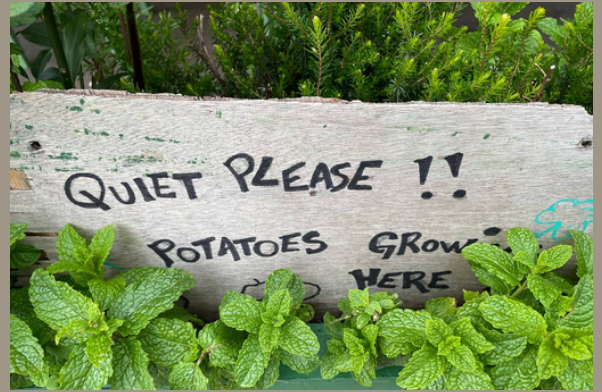 QUIET PLEASE !!
POTATOES GROW
HERE